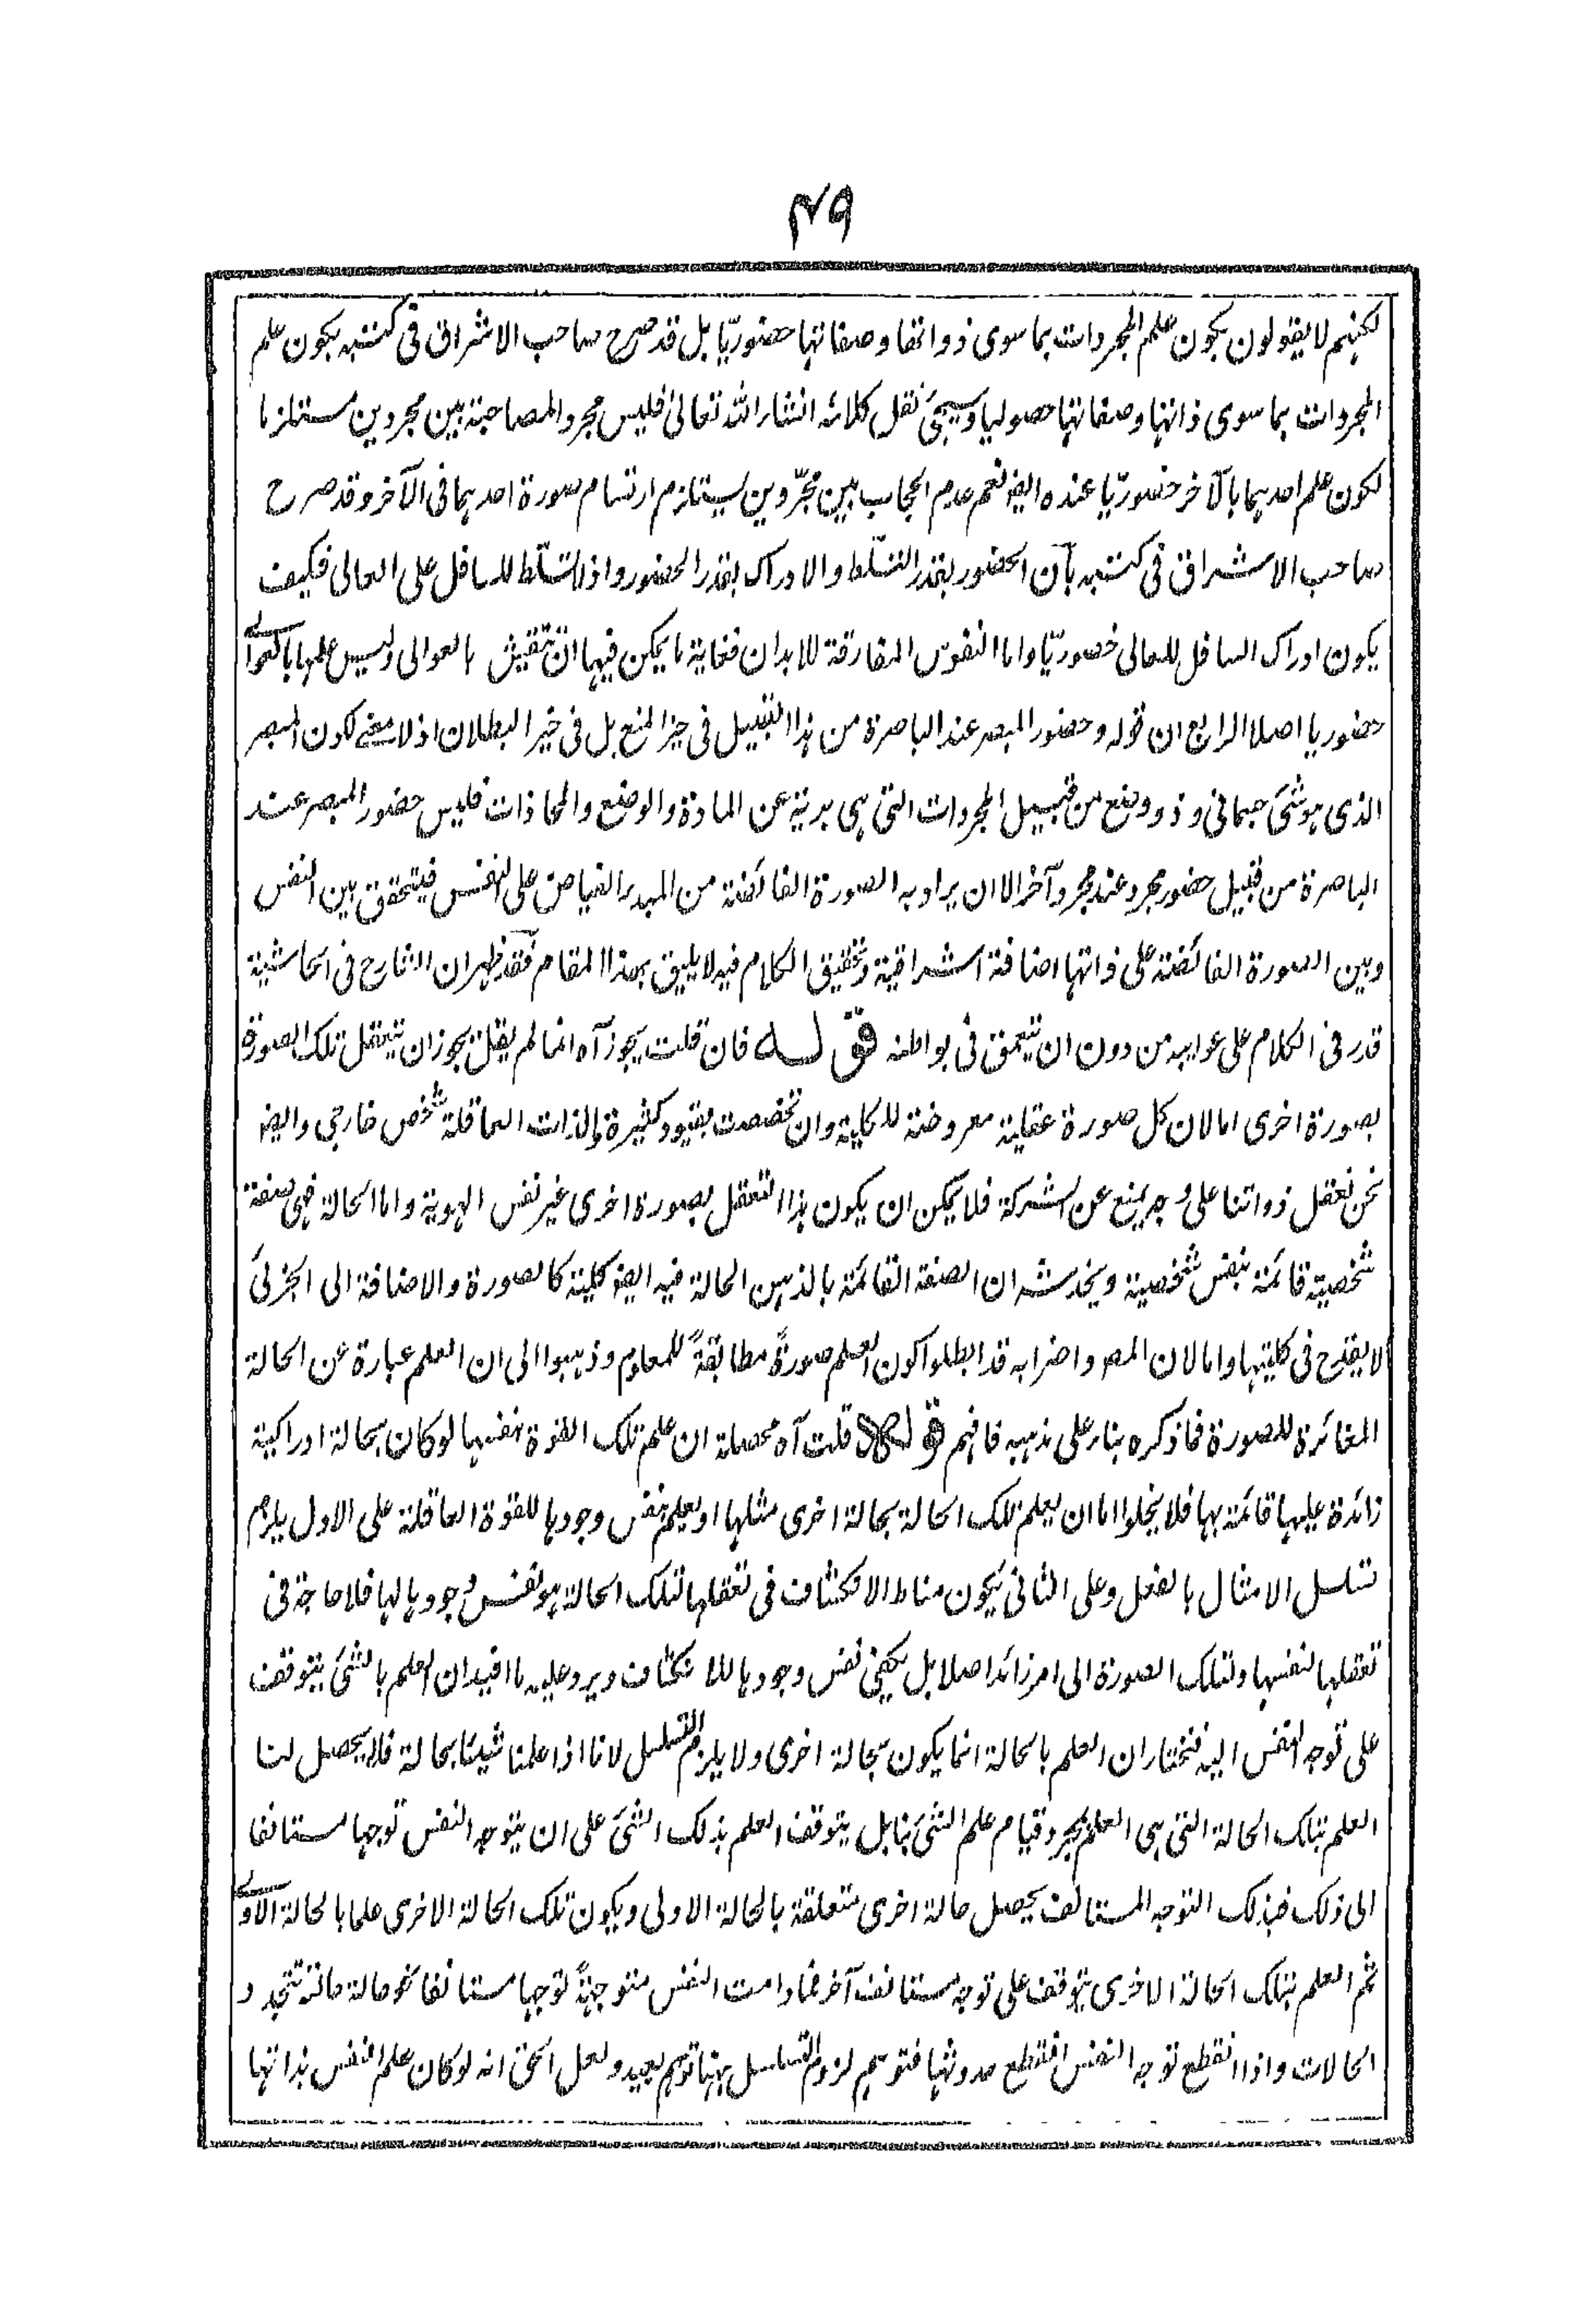 ٤٩
لكنهم لا يقولون بكون علم المجردات بما سوى ذواتها وصفاتها حضوريّا بل قد صرح صاحب الاشراق فى كتبه بكون علم
المجردات بما سوى ذاتها وصفاتها حصوليا وسيجئ نقل كلامه انشاء الله تعالى فليس مجرد المصاحبة بين مجردين مستلزما
لكون علم احدهما بالآخر حضوريّا عنده ايضا نعم عدم الحجاب بين مجرّدين يستلزم ارتسام صورة احدهما فى الآخر وقد صرح
صاحب الاشراق فى كتبه بأن الحضور بقدر التسلّط والادراك بقدر الحضور واذ لا تسلّط للسافل على العالى فكيف
يكون ادراك السافل للعالى حضوريّا واما النفوس المفارقة للابدان فغاية ما يمكن فيها ان تنتقش بالعوالى وليس علمها بالعوالى
حضوريا اصلا الرابع ان قوله وحضور المبصر عند الباصرة من هذا القبيل فى حيز المنع بل فى حيز البطلان اذ لا معنى لكون المبصر
الذى هو شئ جسمانى وذو وضع من قبيل المجردات التى هى برئية عن المادة والوضع والمحاذات فليس حضور المبصر عند
الباصرة من قبيل حضور مجرد عند مجرد آخر الا ان يراد به الصورة الفائضة من المبدء الفياض على النفس فيتحقق بين النفس
وبين الصورة الفائضة على ذاتها اضافة اشراقية وتحقيق الكلام فيه لا يليق بهذا المقام فقد ظهر ان الشارح فى الحاشية
قدر فى الكلام على عواهنه من دون ان يتعمق فى بواطنه قوله فان قلت يجوز آه انما لم يقل يجوز ان تتعقل تلك الصورة
بصورة اخرى اما لان كل صورة عقلية معروضة للكلية وان تخصصت بقيود كثيرة والذات العاقلة شخص خارجى وايضا
نحن نعقل ذواتنا على وجه يمنع عن الشركة فلا يمكن ان يكون هذا التعقل بصورة اخرى غير نفس الهوية واما الحالة فهى صفة
شخصية قائمة بنفس شخصية ويخدشه ان الصفة القائمة بالذهن الحالة فيه ايضا كلية كالصورة والاضافة الى الجزئى
لا يقدح فى كليتها واما لان المصر واضرابه قد ابطلوا كون العلم صورةً مطابقةً للمعلوم وذهبوا الى ان العلم عبارة عن الحالة
المغائرة للصورة فما ذكره بناء على مذهبه فافهم قوله قلت آه محصلة ان علم تلك القوة بنفسها لو كان بحالة ادراكية
زائدة عليها قائمة بها فلا يخلوا اما ان يعلم تلك الحالة بحالة اخرى مثلها او يعلم بنفس وجودها للقوة العاقلة على الاول يلزم
تسلسل الامثال بالفعل وعلى الثانى يكون مناط الانكشاف فى تعقلها لتلك الحالة هو نفس وجودها لها فلا حاجة فى
تعقلها لنفسها ولتلك الصورة الى امر زائد اصلا بل يكفى نفس وجودها للانكشاف ويرد عليه ما افيد ان العلم بالشئ يتوقف
على توجه النفس اليه فنختار ان العلم بالحالة انما يكون بحالة اخرى ولا يلزم التسلسل لانا اذا علمنا شيئا بحالة فلا يحصل لنا
العلم بتلك الحالة التى هى العلم بمجرد قيام علم الشئ بنا بل يتوقف العلم بذلك الشئ على ان يتوجه النفس توجها مستانفا
الى ذلك فبذلك التوجه المستانف يحصل حالة اخرى متعلقة بالحالة الاولى ويكون تلك الحالة الاخرى علما بالحالة الاولى
ثم العلم بتلك الحالة الاخرى يتوقف على توجه مستانف آخر فما دامت النفس متوجهةً توجها مستانفا نحو حالة حالة تتجدد
الحالات واذا انقطع توجه النفس انقطع حدوثها فتوهم لزوم التسلسل ههنا توهم بعيد ولعل الحق انه لو كان علم النفس بذاتها